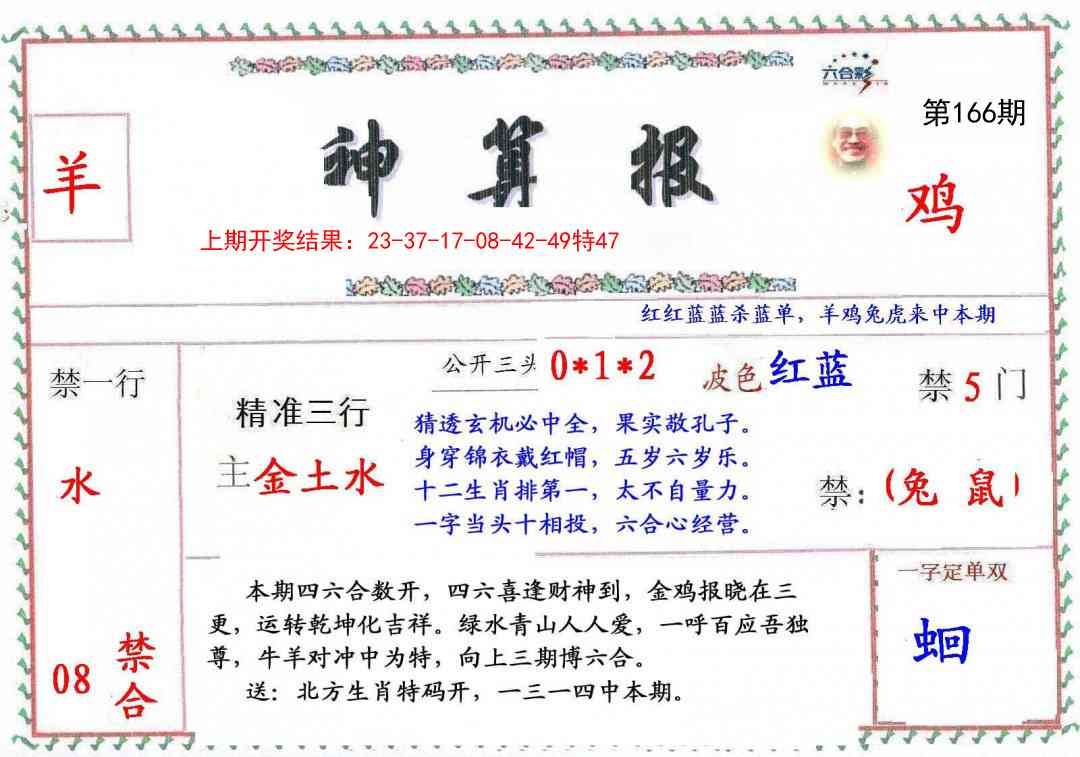 六合彩
第166期
羊
神算报
鸡
上期开奖结果：23-37-17-08-42-49特47
红红蓝蓝杀蓝单，羊鸡兔虎来中本期
禁一行
水
08
禁合
公开三头
0*1*2
波色
红蓝
禁5门
精准三行
主金土水
猜透玄机必中全，果实敌孔子。
身穿锦衣戴红帽，五岁六岁乐。
十二生肖排第一，太不自量力。
一字当头十相投，六合心经营。
禁：(兔 鼠)
本期四六合数开，四六喜逢财神到，金鸡报晓在三
更，运转乾坤化吉祥。绿水青山人人爱，一呼百应吾独
尊，牛羊对冲中为特，向上三期博六合。
送：北方生肖特码开，一三一四中本期。
一字定单双
蛔